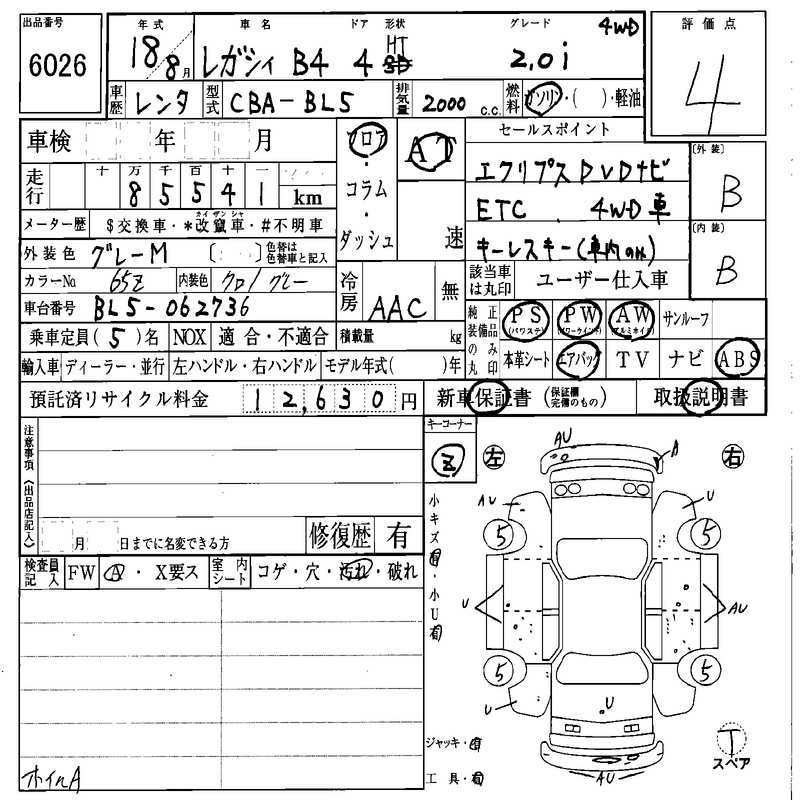 出品番号 年式 車名 ドア 形状 グレード 4WD 評価点
6026 18/8月 レガシィ B4 4 HT 2.0i 4
車歴 レンタ 型式 CBA-BL5 排気量 2000 c.c. 燃料 ガソリン・( )・軽油
車検 年 月 フロア AT セールスポイント
・コラム・ダッシュ 速
エクリプスDVDナビ
[外装] B
走行 十万千百十
8 5 5 4 1 km
ETC 4WD車
メーター歴 $交換車・*改竄車・#不明車
カイ ザン シャ
キーレスキー(車内のみ)
[内装] B
外装色 グレーM ( ) 色替は色替車と記入
該当車は丸印 ユーザー仕入車
カラーNo 65Z 内装色 クロ/グレー
冷房 AAC 無
車台番号 BL5-062736
純正装備品のみ丸印 PS (パワステ) PW (パワーウインド) AW (アルミホイル) サンルーフ
乗車定員(5)名 NOX 適合・不適合 積載量 kg
本革シート エアバッグ TV ナビ ABS
輸入車 ディーラー・並行 左ハンドル・右ハンドル モデル年式( )年
預託済リサイクル料金 12,630円
新車保証書 (保証欄完備のもの) 取扱説明書
注意事項(出品店記入)
キーコーナー
Z
左 右
AU A
AU U
小キズ有・小U有
5 5
月 日までに名変できる方 修復歴 有
検査員記入 FW A・X要ス 室内シート コゲ・穴・汚れ・破れ
U AU
5 5
U U
ジャッキ・有
工具・有
AU
T
スペア
ホイルA